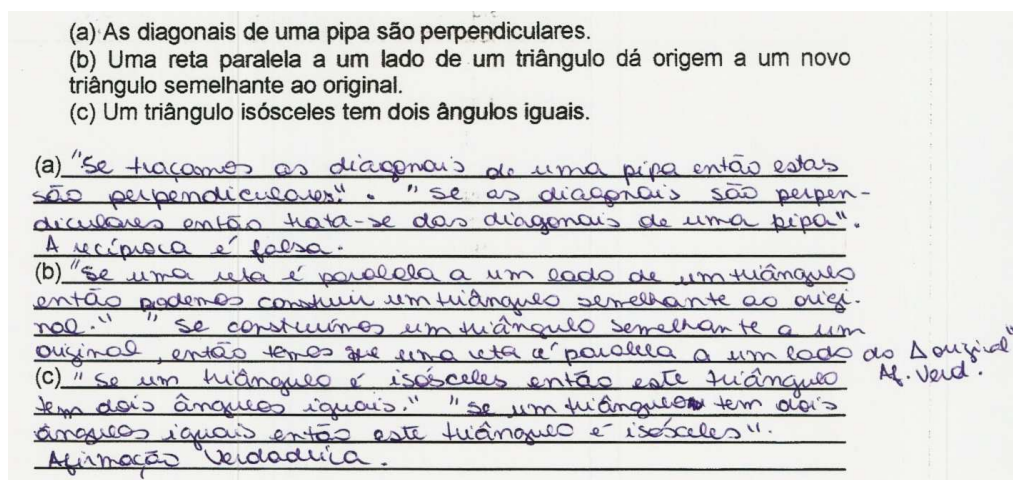 (a) As diagonais de uma pipa são perpendiculares.
(b) Uma reta paralela a um lado de um triângulo dá origem a um novo
triângulo semelhante ao original.
(c) Um triângulo isósceles tem dois ângulos iguais.
(a) "Se traçamos as diagonais de uma pipa então estas
são perpendiculares". "Se as diagonais são perpen-
diculares então trata-se das diagonais de uma pipa".
A recíproca é falsa.
(b) "Se uma reta é paralela a um lado de um triângulo
então podemos construir um triângulo semelhante ao origi-
nal." "Se construímos um triângulo semelhante a um
original, então temos que uma reta é paralela a um lado do Δ original"
Af. Verd.
(c) "Se um triângulo é isósceles então este triângulo
tem dois ângulos iguais." "Se um triângulo tem dois
ângulos iguais então este triângulo é isósceles".
Afirmação Verdadeira.